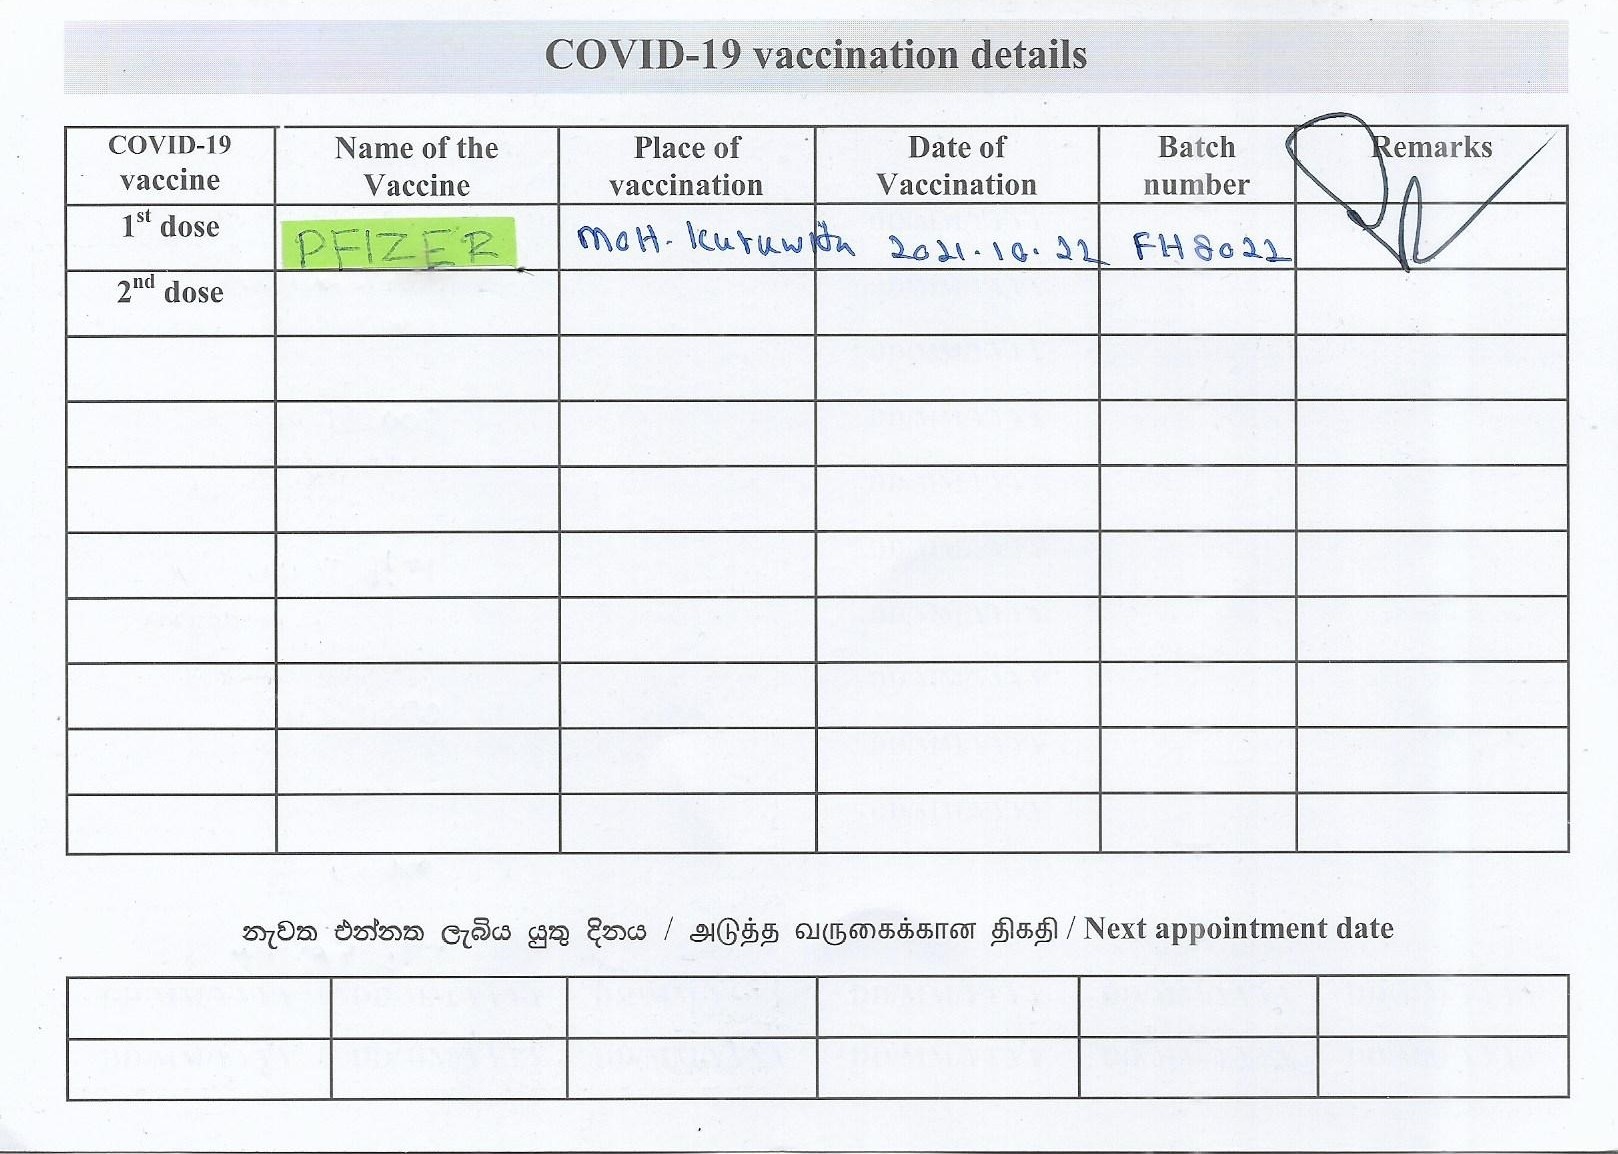 COVID-19 vaccination details
COVID-19 vaccine Name of the Vaccine Place of vaccination Date of Vaccination Batch number Remarks
1st dose PFIZER MOH. Kuruwita 2021.10.22 FH8022
2nd dose
නැවත එන්නත ලැබිය යුතු දිනය / அடுத்த வருகைக்கான திகதி / Next appointment date